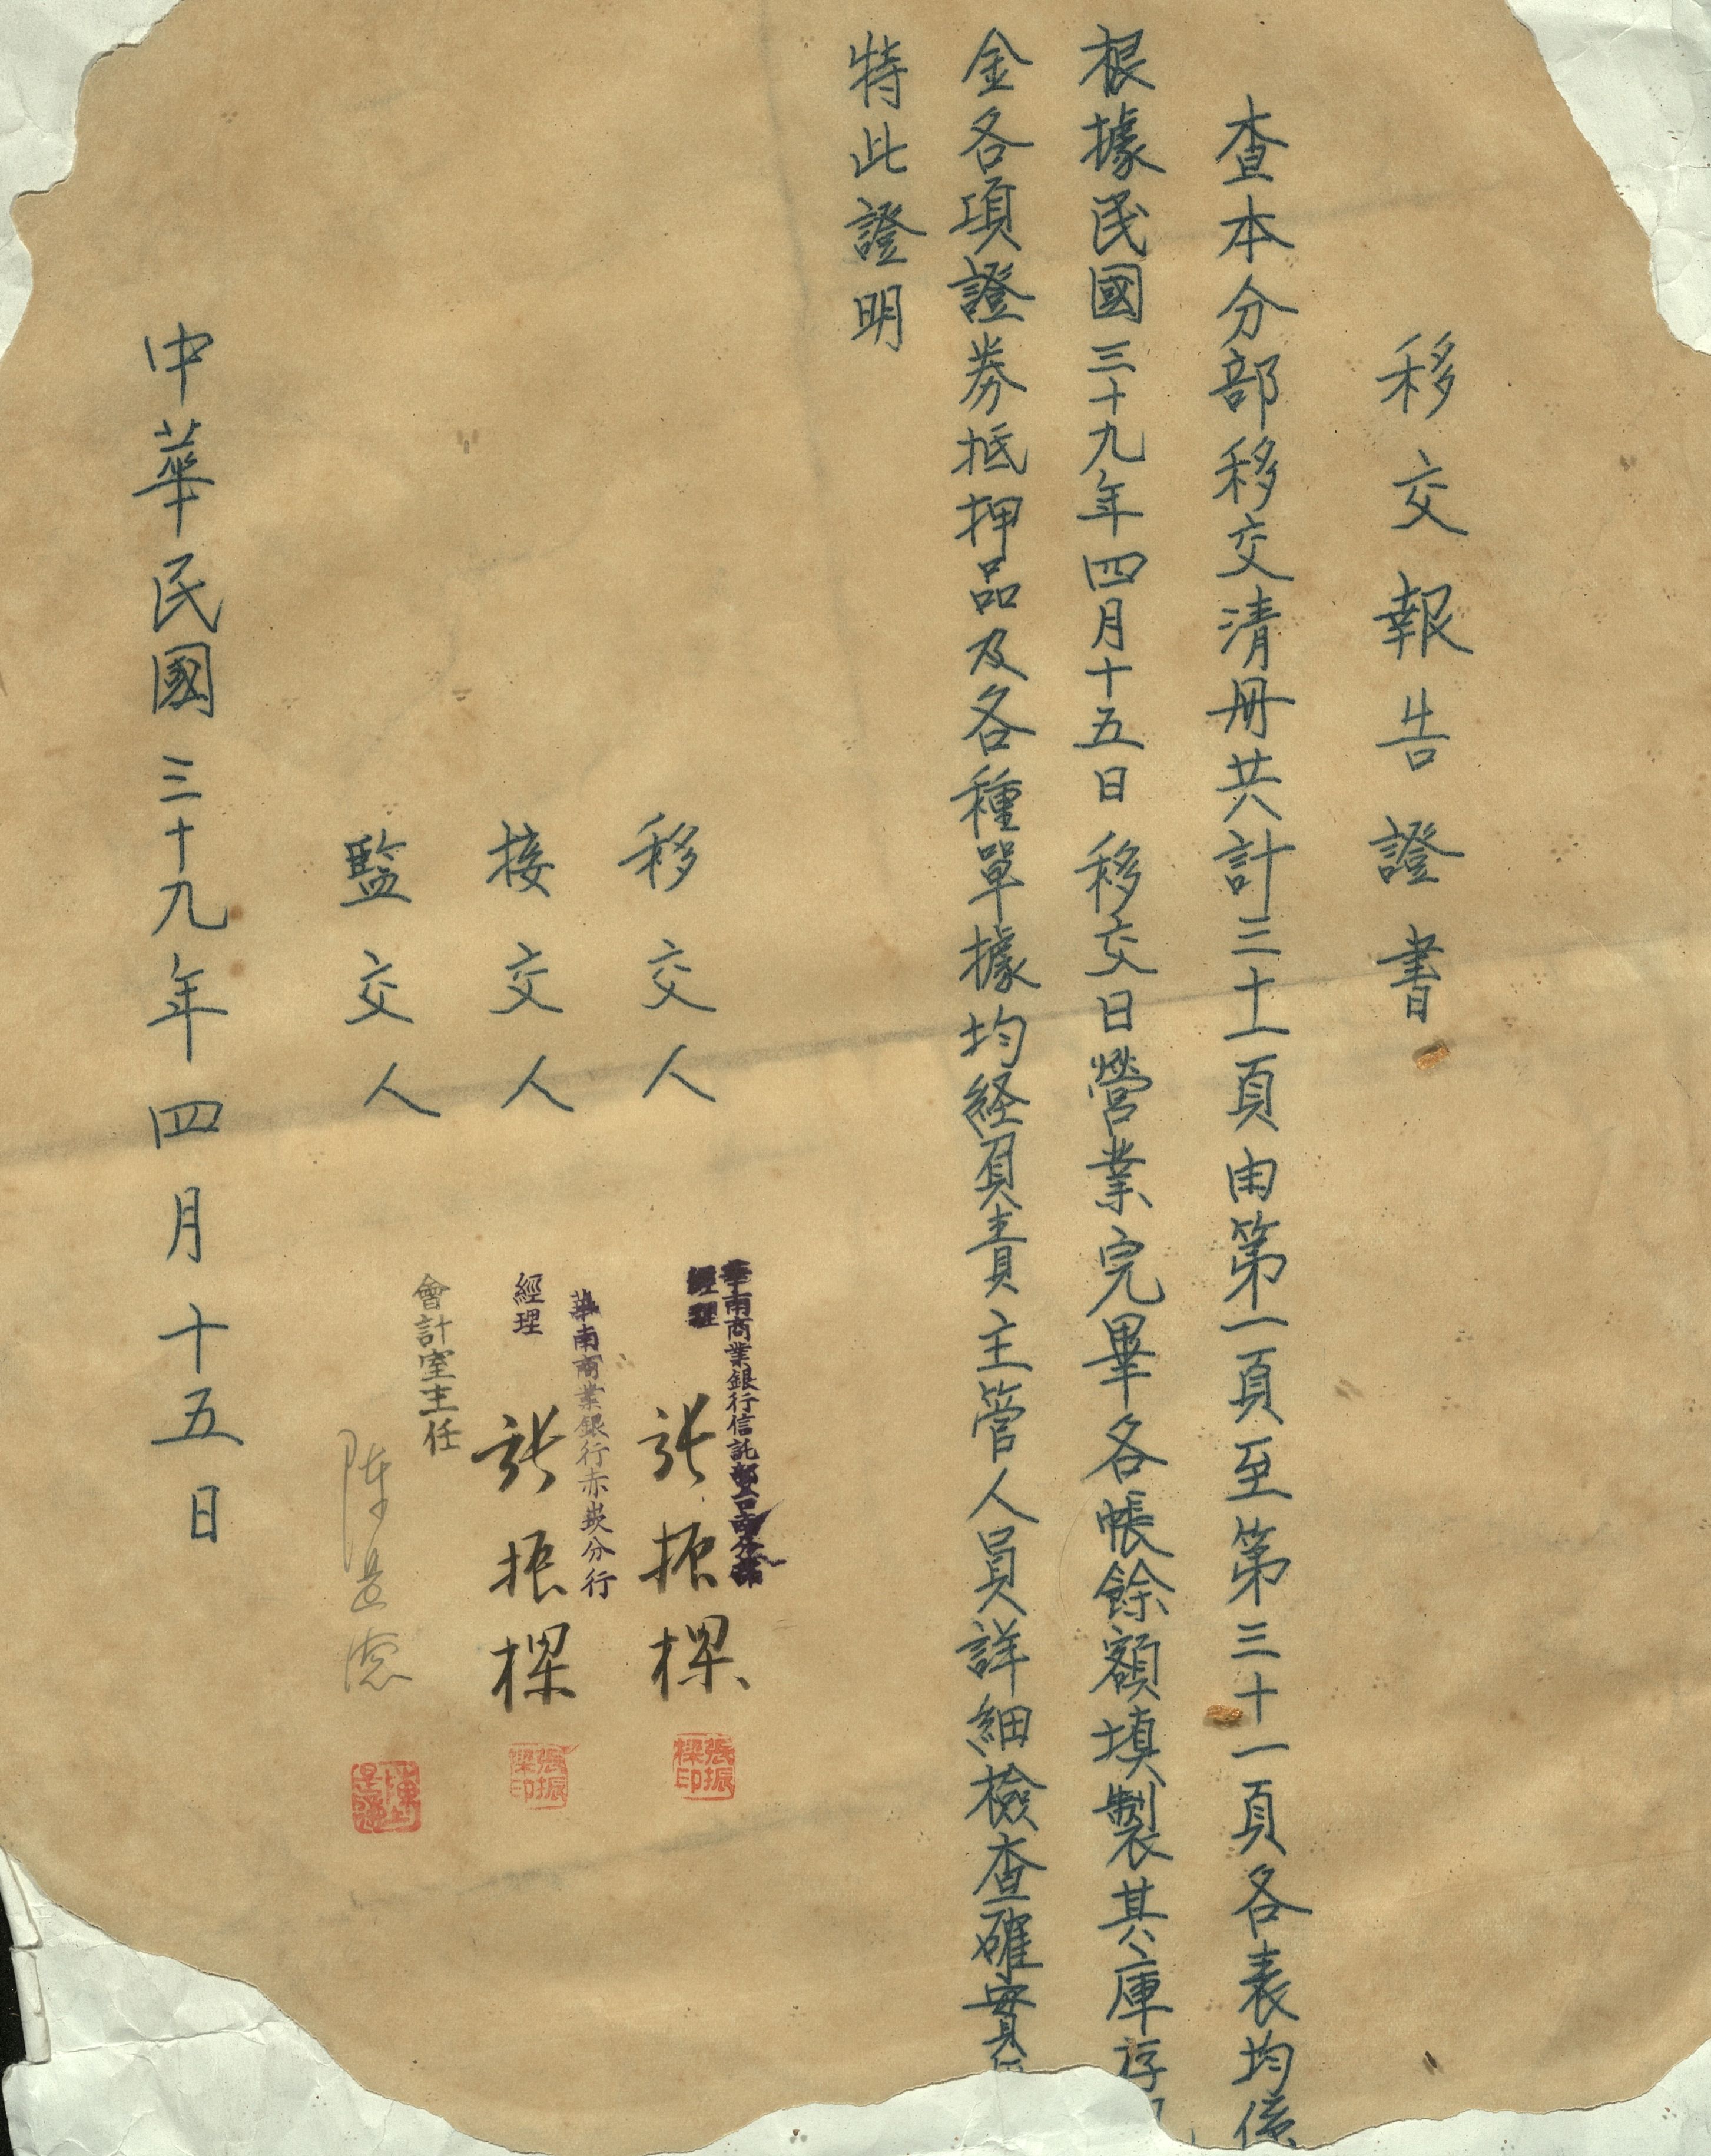 移交報告證書
查本分部移交清册共計三十一頁由第一頁至第三十一頁各表均係
根據民國三十九年四月十五日移交日營業完畢各帳餘額填製其庫存
金各項證券抵押品及各種單據均経負責主管人員詳細檢查確實
特此證明
移交人
華南商業銀行信託部台南分部
經理
張振樑
張振樑印
接交人
華南商業銀行赤崁分行
經理
張振樑
張振樑印
監交人
會計室主任
陳
中華民國三十九年四月十五日